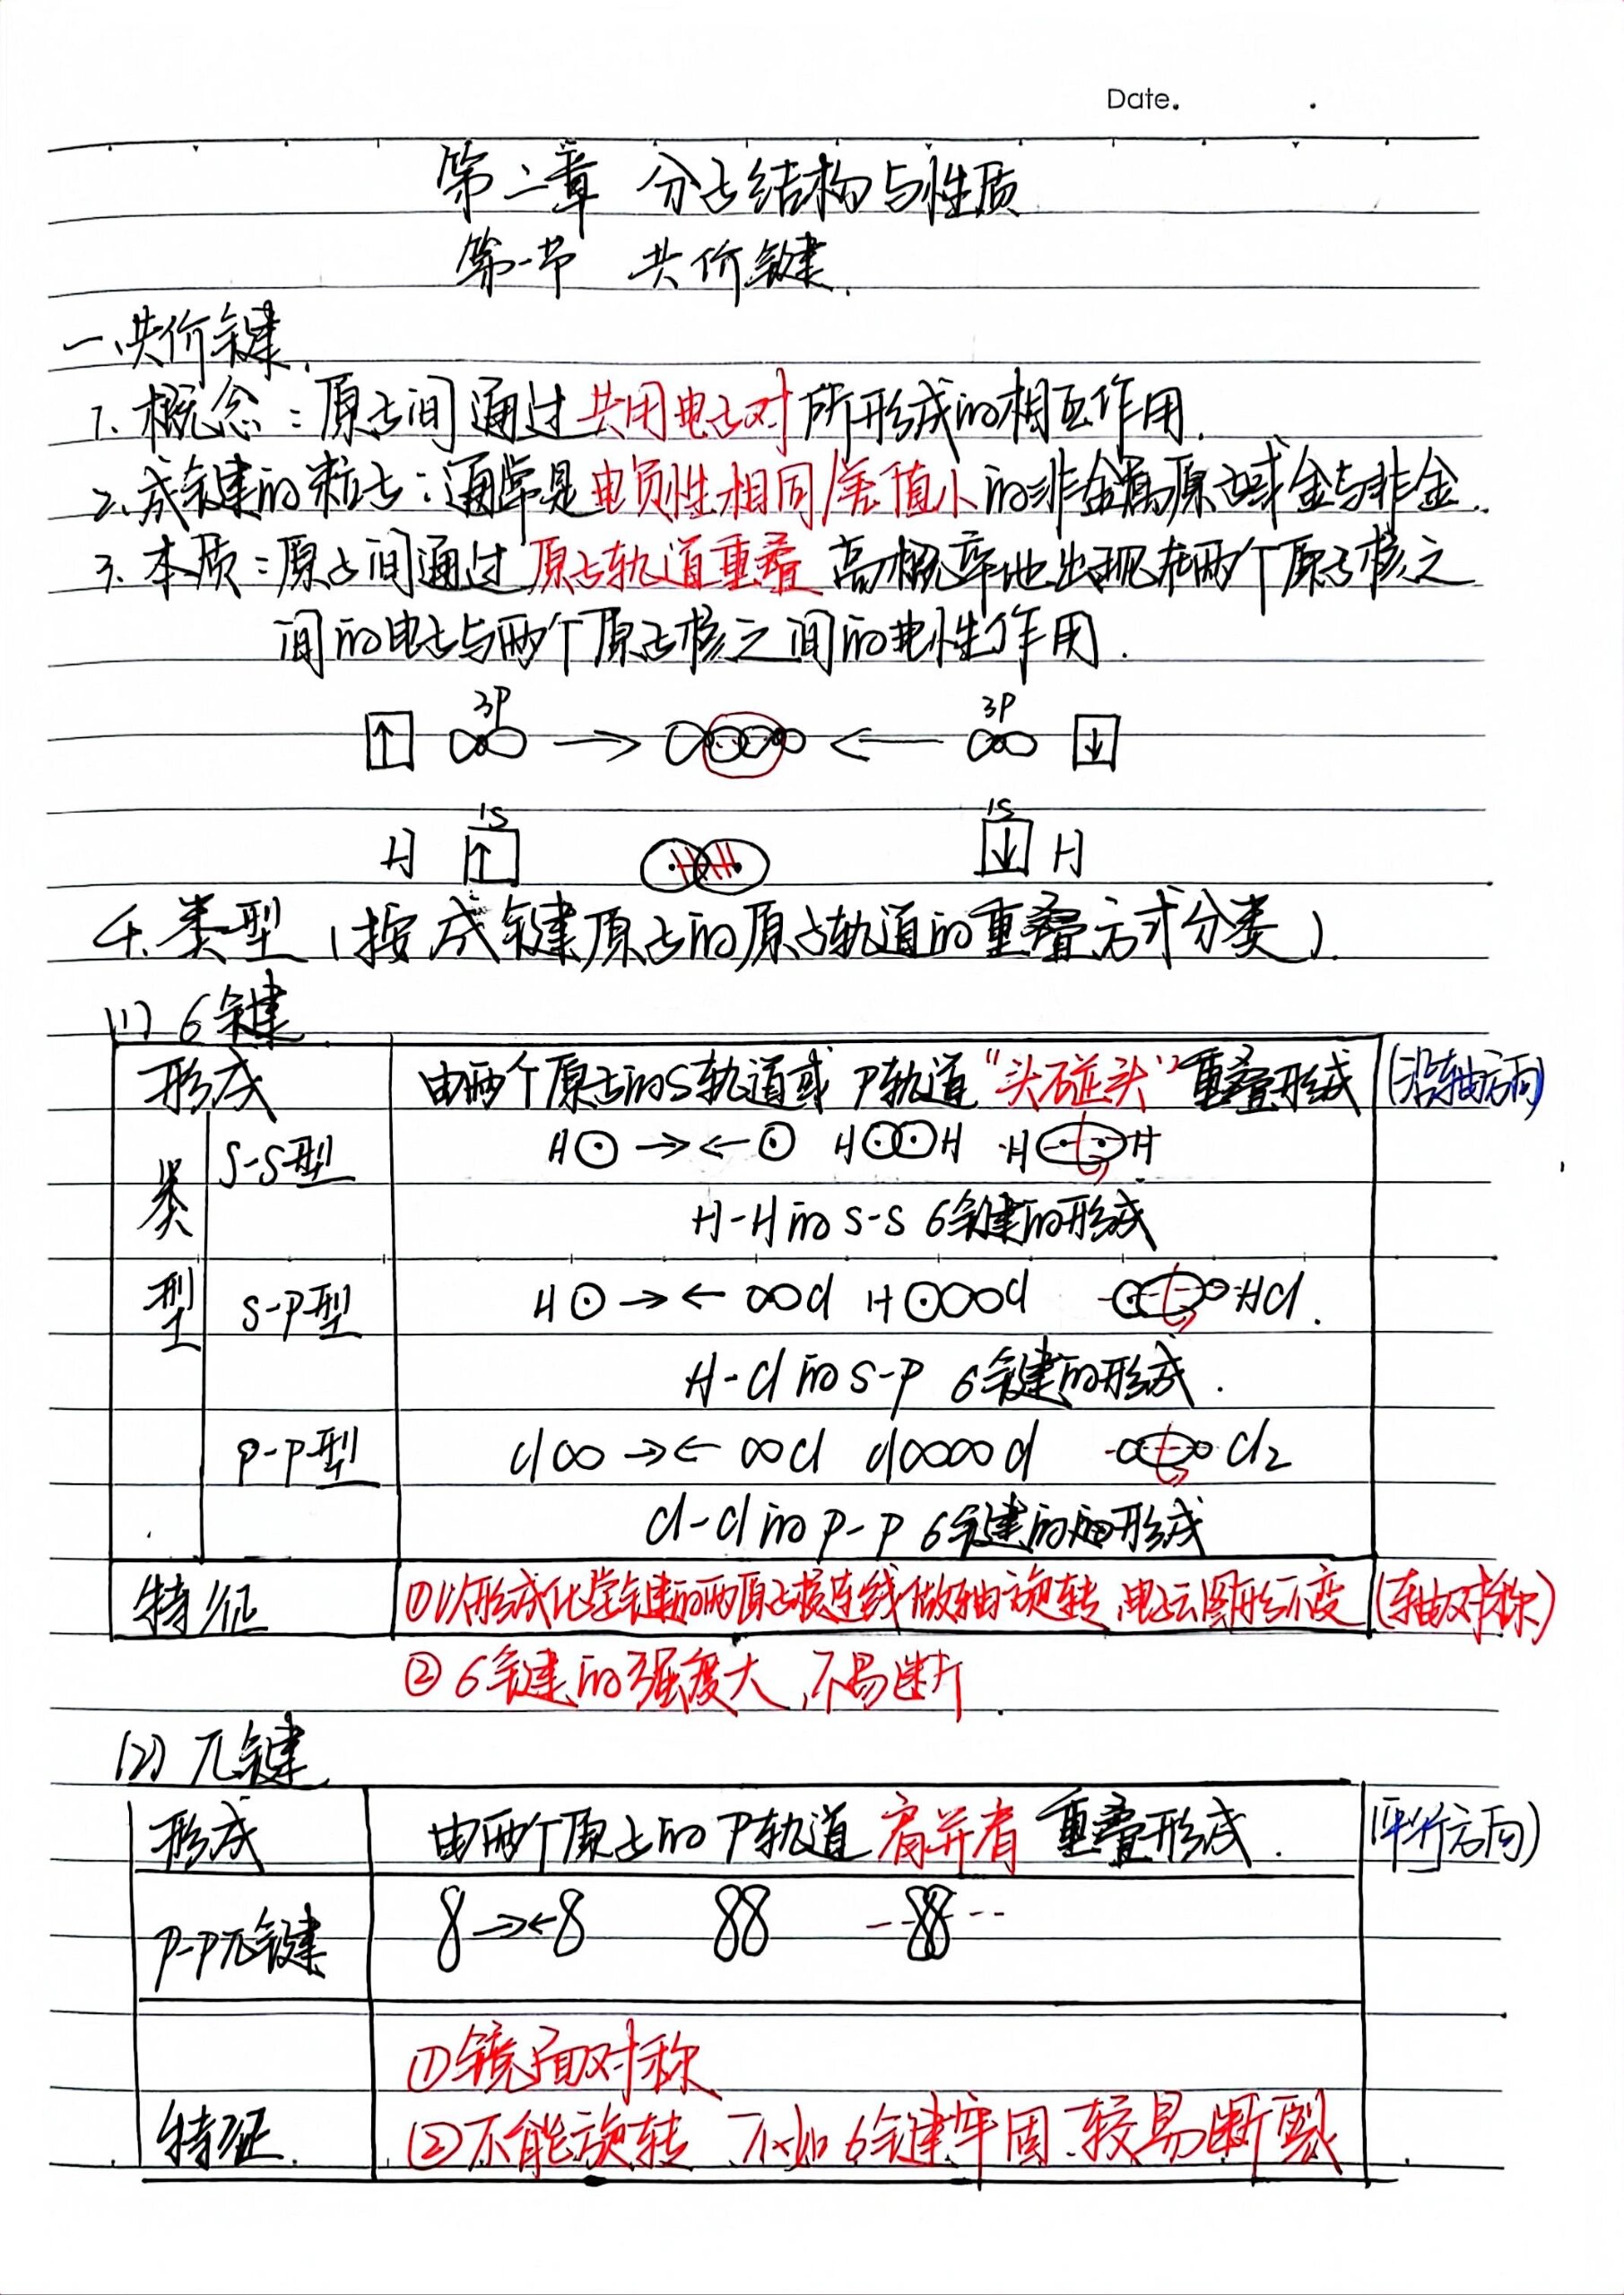 Date.
第二章 分子结构与性质
第一节 共价键.
一、共价键.
1. 概念：原子间通过共用电子对所形成的相互作用.
2. 成键的粒子：通常是电负性相同/差值小的非金属原子或金与非金.
3. 本质：原子间通过原子轨道重叠 高概率地出现在两个原子核之
间的电子与两个原子核之间的电性作用.
↑ 3P → ← 3P ↓
H 1S ↑ 1S ↓ H
4. 类型（按成键原子的原子轨道的重叠方式分类）.
(1) 6键
形成 由两个原子的S轨道或P轨道“头碰头”重叠形成 (沿轴方向)
类型
S-S型 H → ← H H H H
H-H的S-S 6键的形成
S-P型 H → ← Cl H Cl HCl.
H-Cl的S-P 6键的形成.
P-P型 Cl → ← Cl Cl Cl Cl2
Cl-Cl的P-P 6键的形成
特征 ①以形成化学键的两原子核连线做轴旋转、电子云图形不变 (轴对称)
② 6键的强度大、不易断.
(2) π键
形成 由两个原子的P轨道 肩并肩 重叠形成. (平行方向)
P-Pπ键 → ←
特征.
①镜面对称
②不能旋转 不如6键牢固、较易断裂